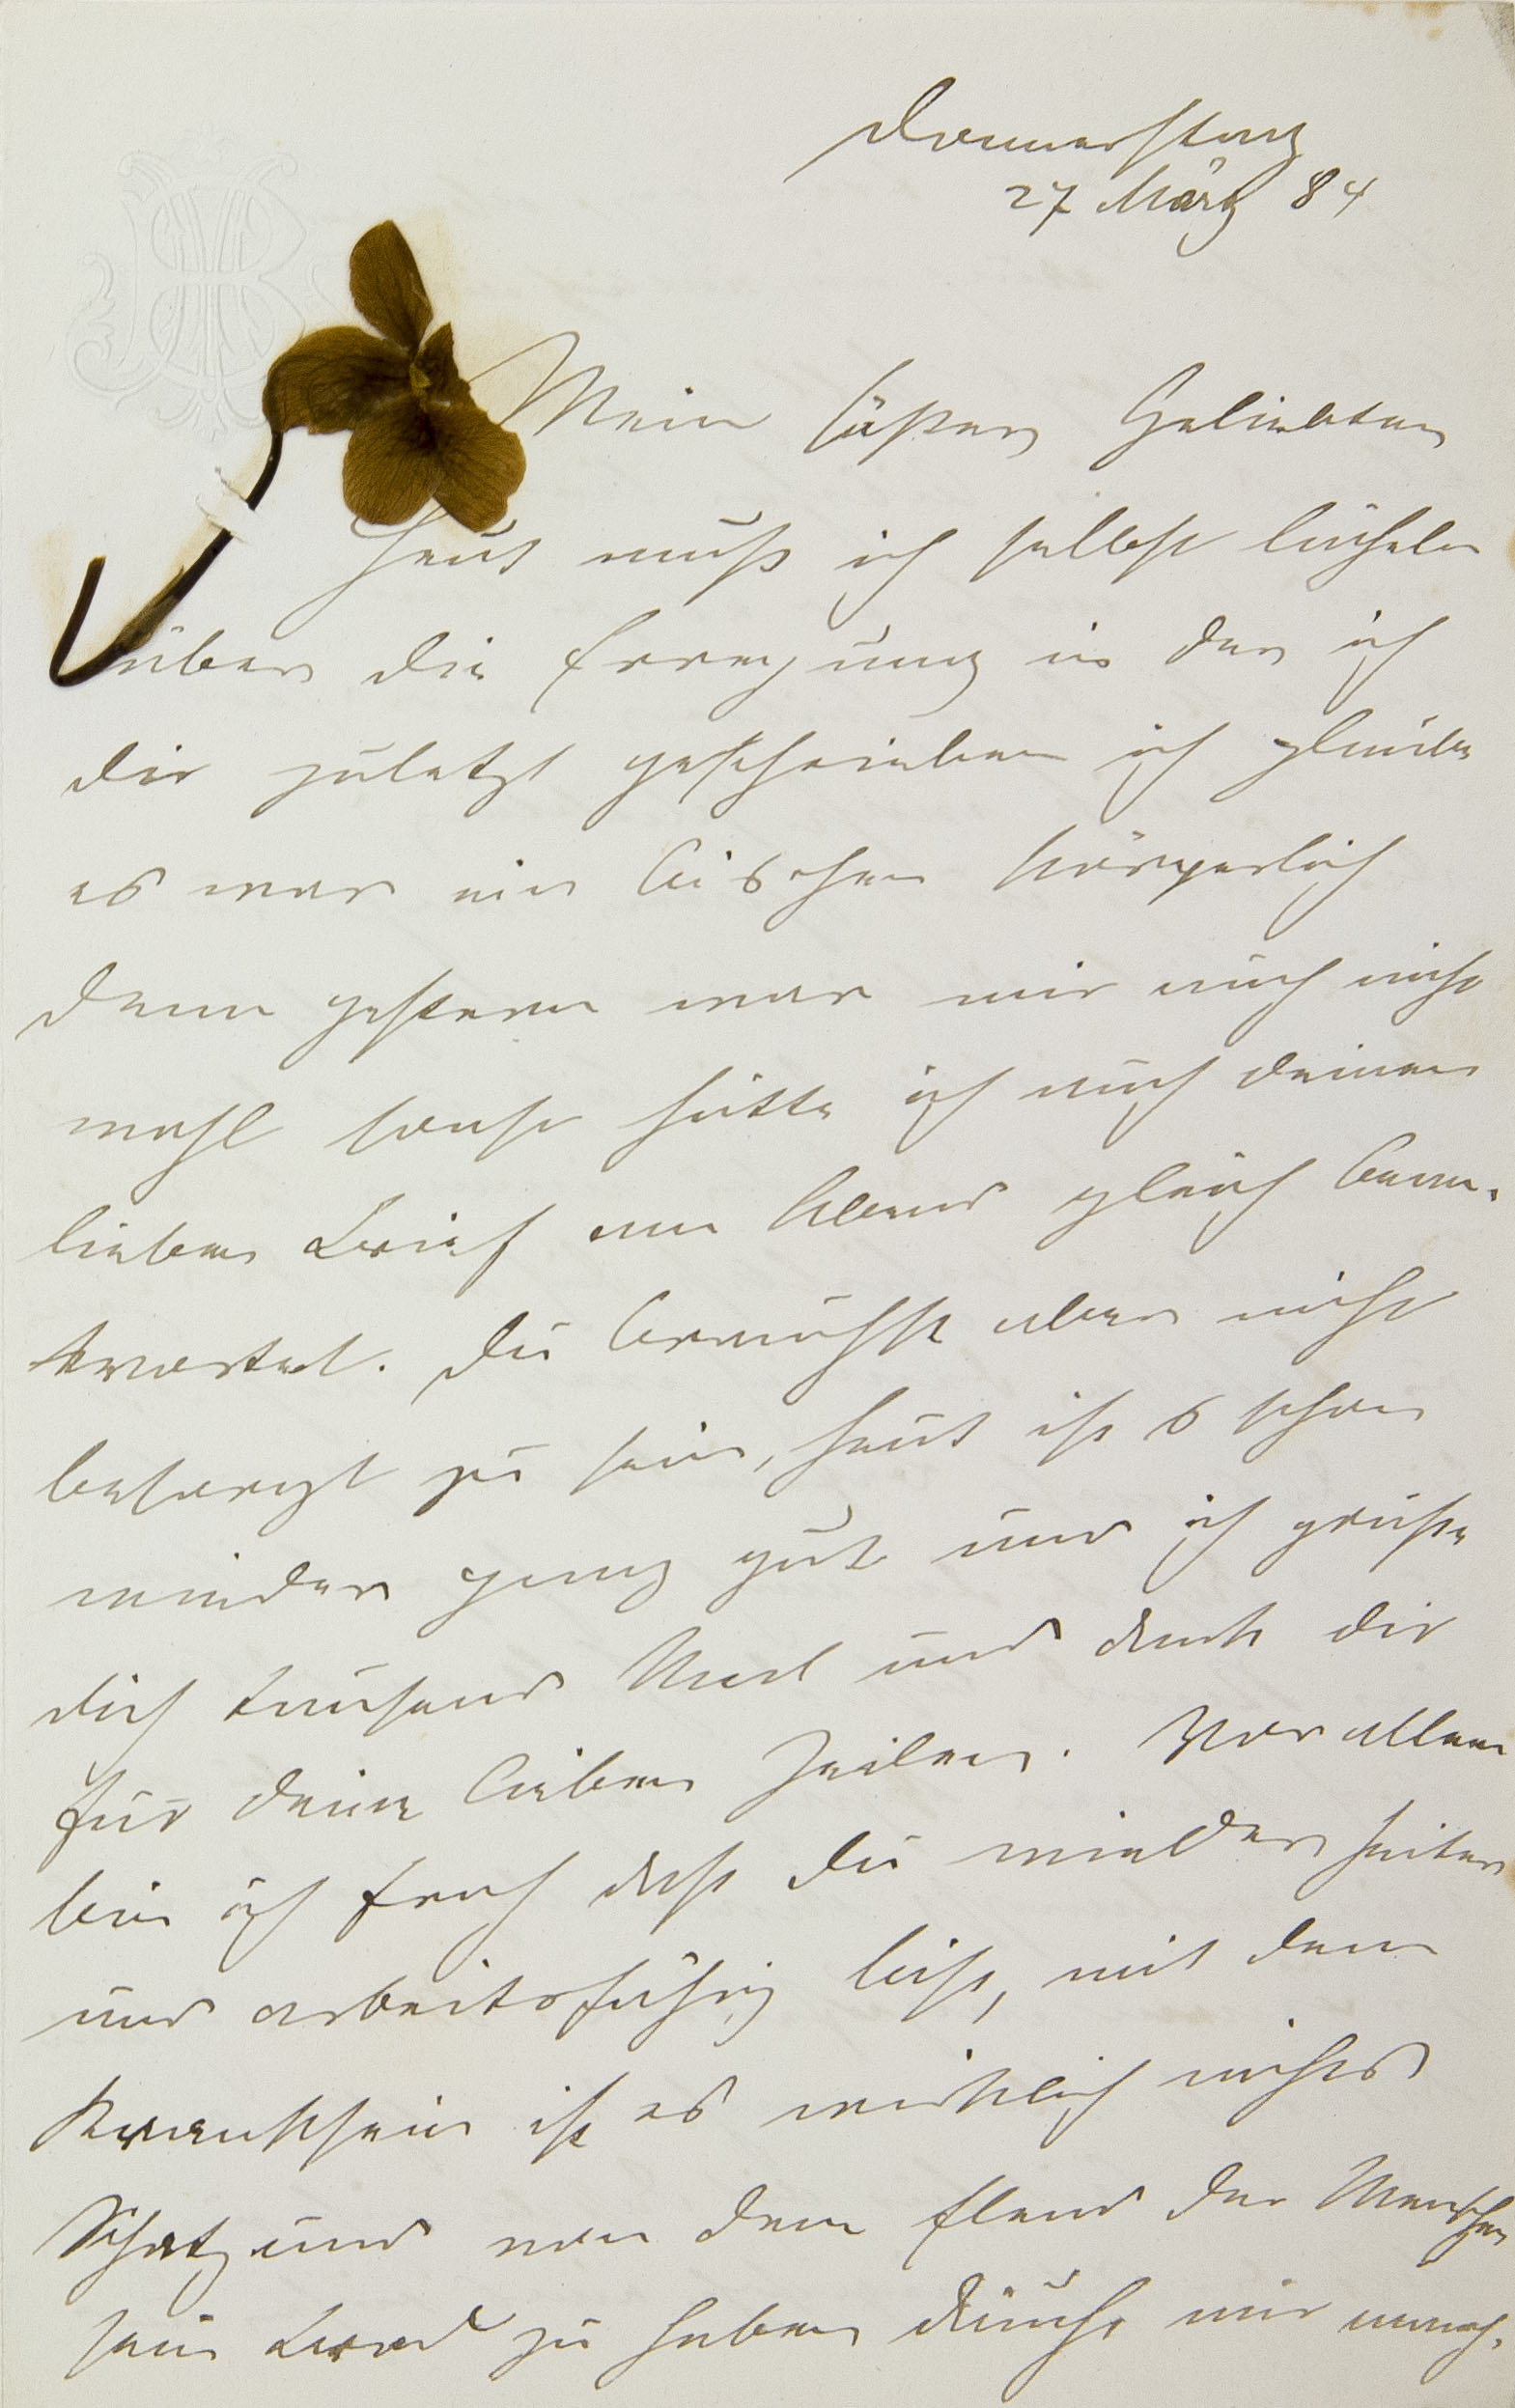 Donnerstag
27 März 84
MB
Mein süßer Geliebter
Heut muß ich selbst lächeln
über die Erregung in der ich
dir zuletzt geschrieben ich glaube
es war ein bischen körperlich
denn gestern war mir auch nicht
wohl sonst hätte ich auch deinen
lieben Brief am Abend gleich bean-
twortet. Du brauchst aber nicht
besorgt zu sein, heut ist s schon
wieder ganz gut und ich grüße
dich tausend Mal und dank dir
für deine lieben Zeilen. Vor allem
bin ich froh daß du wieder heiter
und arbeitsfähig bist, mit dem
Kranksein ist es wirklich nichts
Schatz und von dem Elend der Menschen
sein Brod zu haben däucht mir manch-